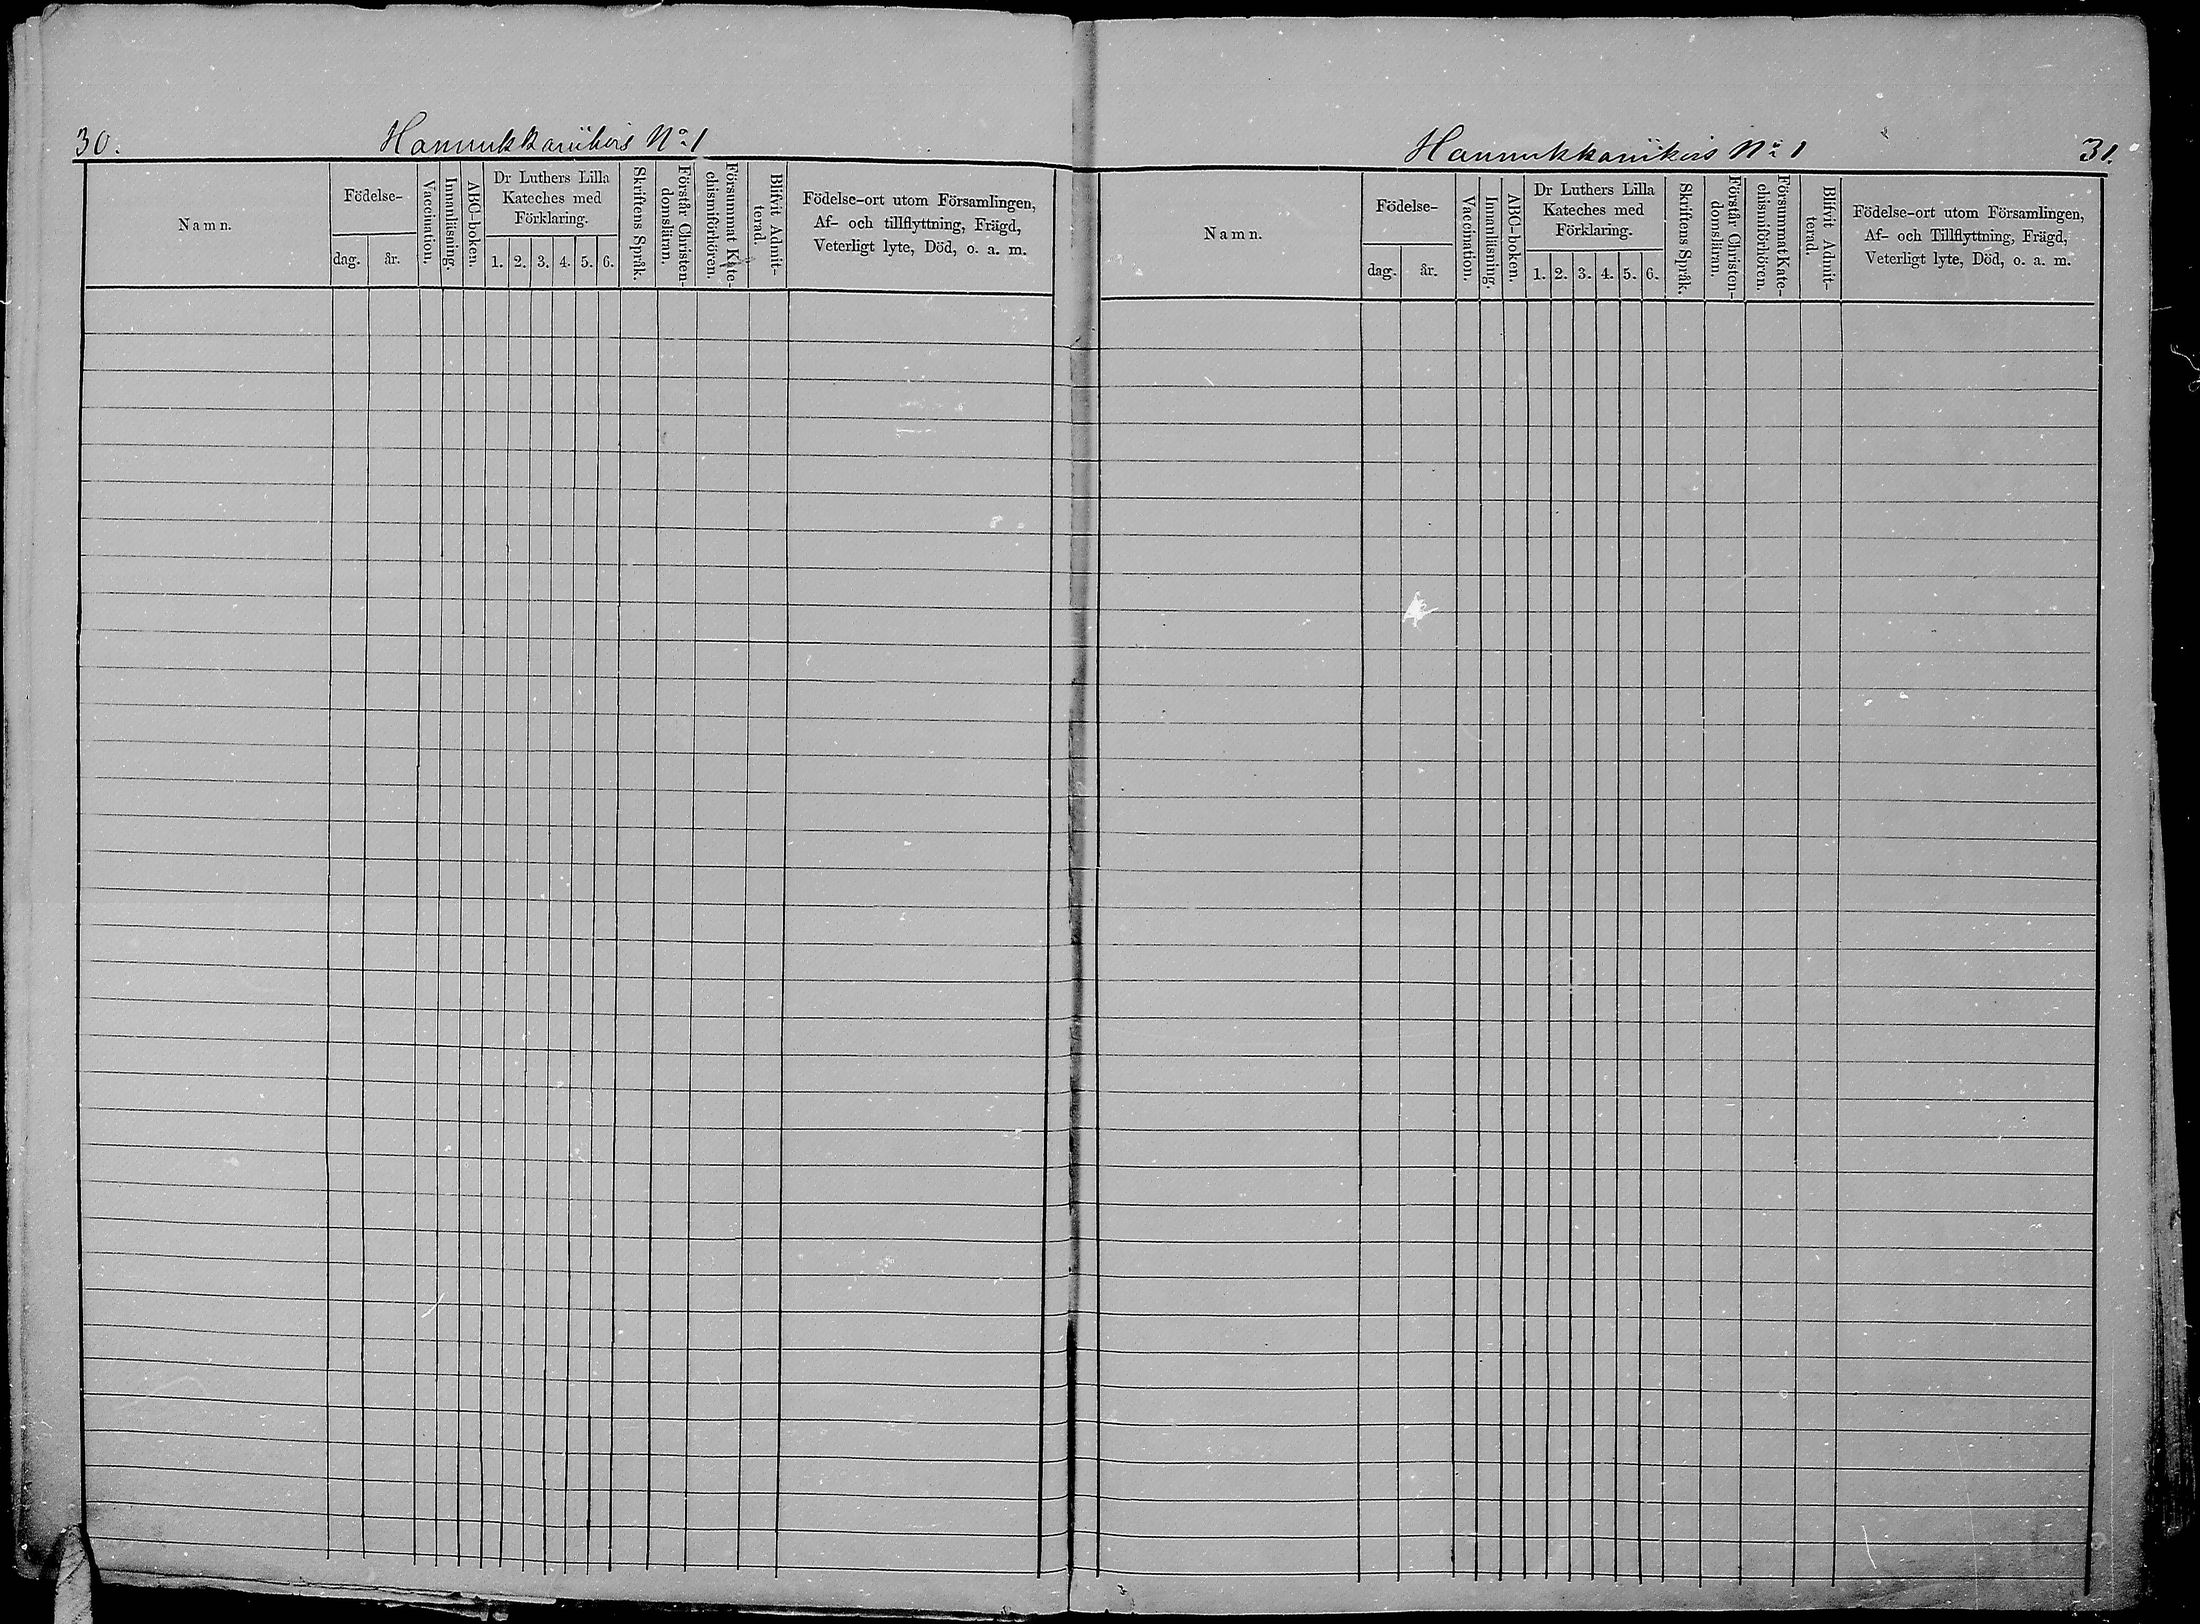 30.
Hannukkanikois No 1
Namn.
Födelse-
dag.
år.
Vaccination.
Innanläsning.
ABC-boken.
Dr Luthers Lilla
Kateches med
Förklaring.
1. 2. 3. 4. 5. 6.
Skriftens Språk.
Förstår Christen-
domsläran.
Försummat Kate-
chismiförhören.
Blifvit Admit-
terad.
Födelse-ort utom Församlingen,
Af- och tillflyttning, Frägd,
Veterligt lyte, Död, o. a. m.
Hannukkanikois No 1
31.
Namn.
Födelse-
dag.
år.
Vaccination.
Innanläsning.
ABC-boken.
Dr Luthers Lilla
Kateches med
Förklaring.
1. 2. 3. 4. 5. 6.
Skriftens Språk.
Förstår Christen-
domsläran.
Försummat Kate-
chismiförhören.
Blifvit Admit-
terad.
Födelse-ort utom Församlingen,
Af- och Tillflyttning, Frägd,
Veterligt lyte, Död, o. a. m.